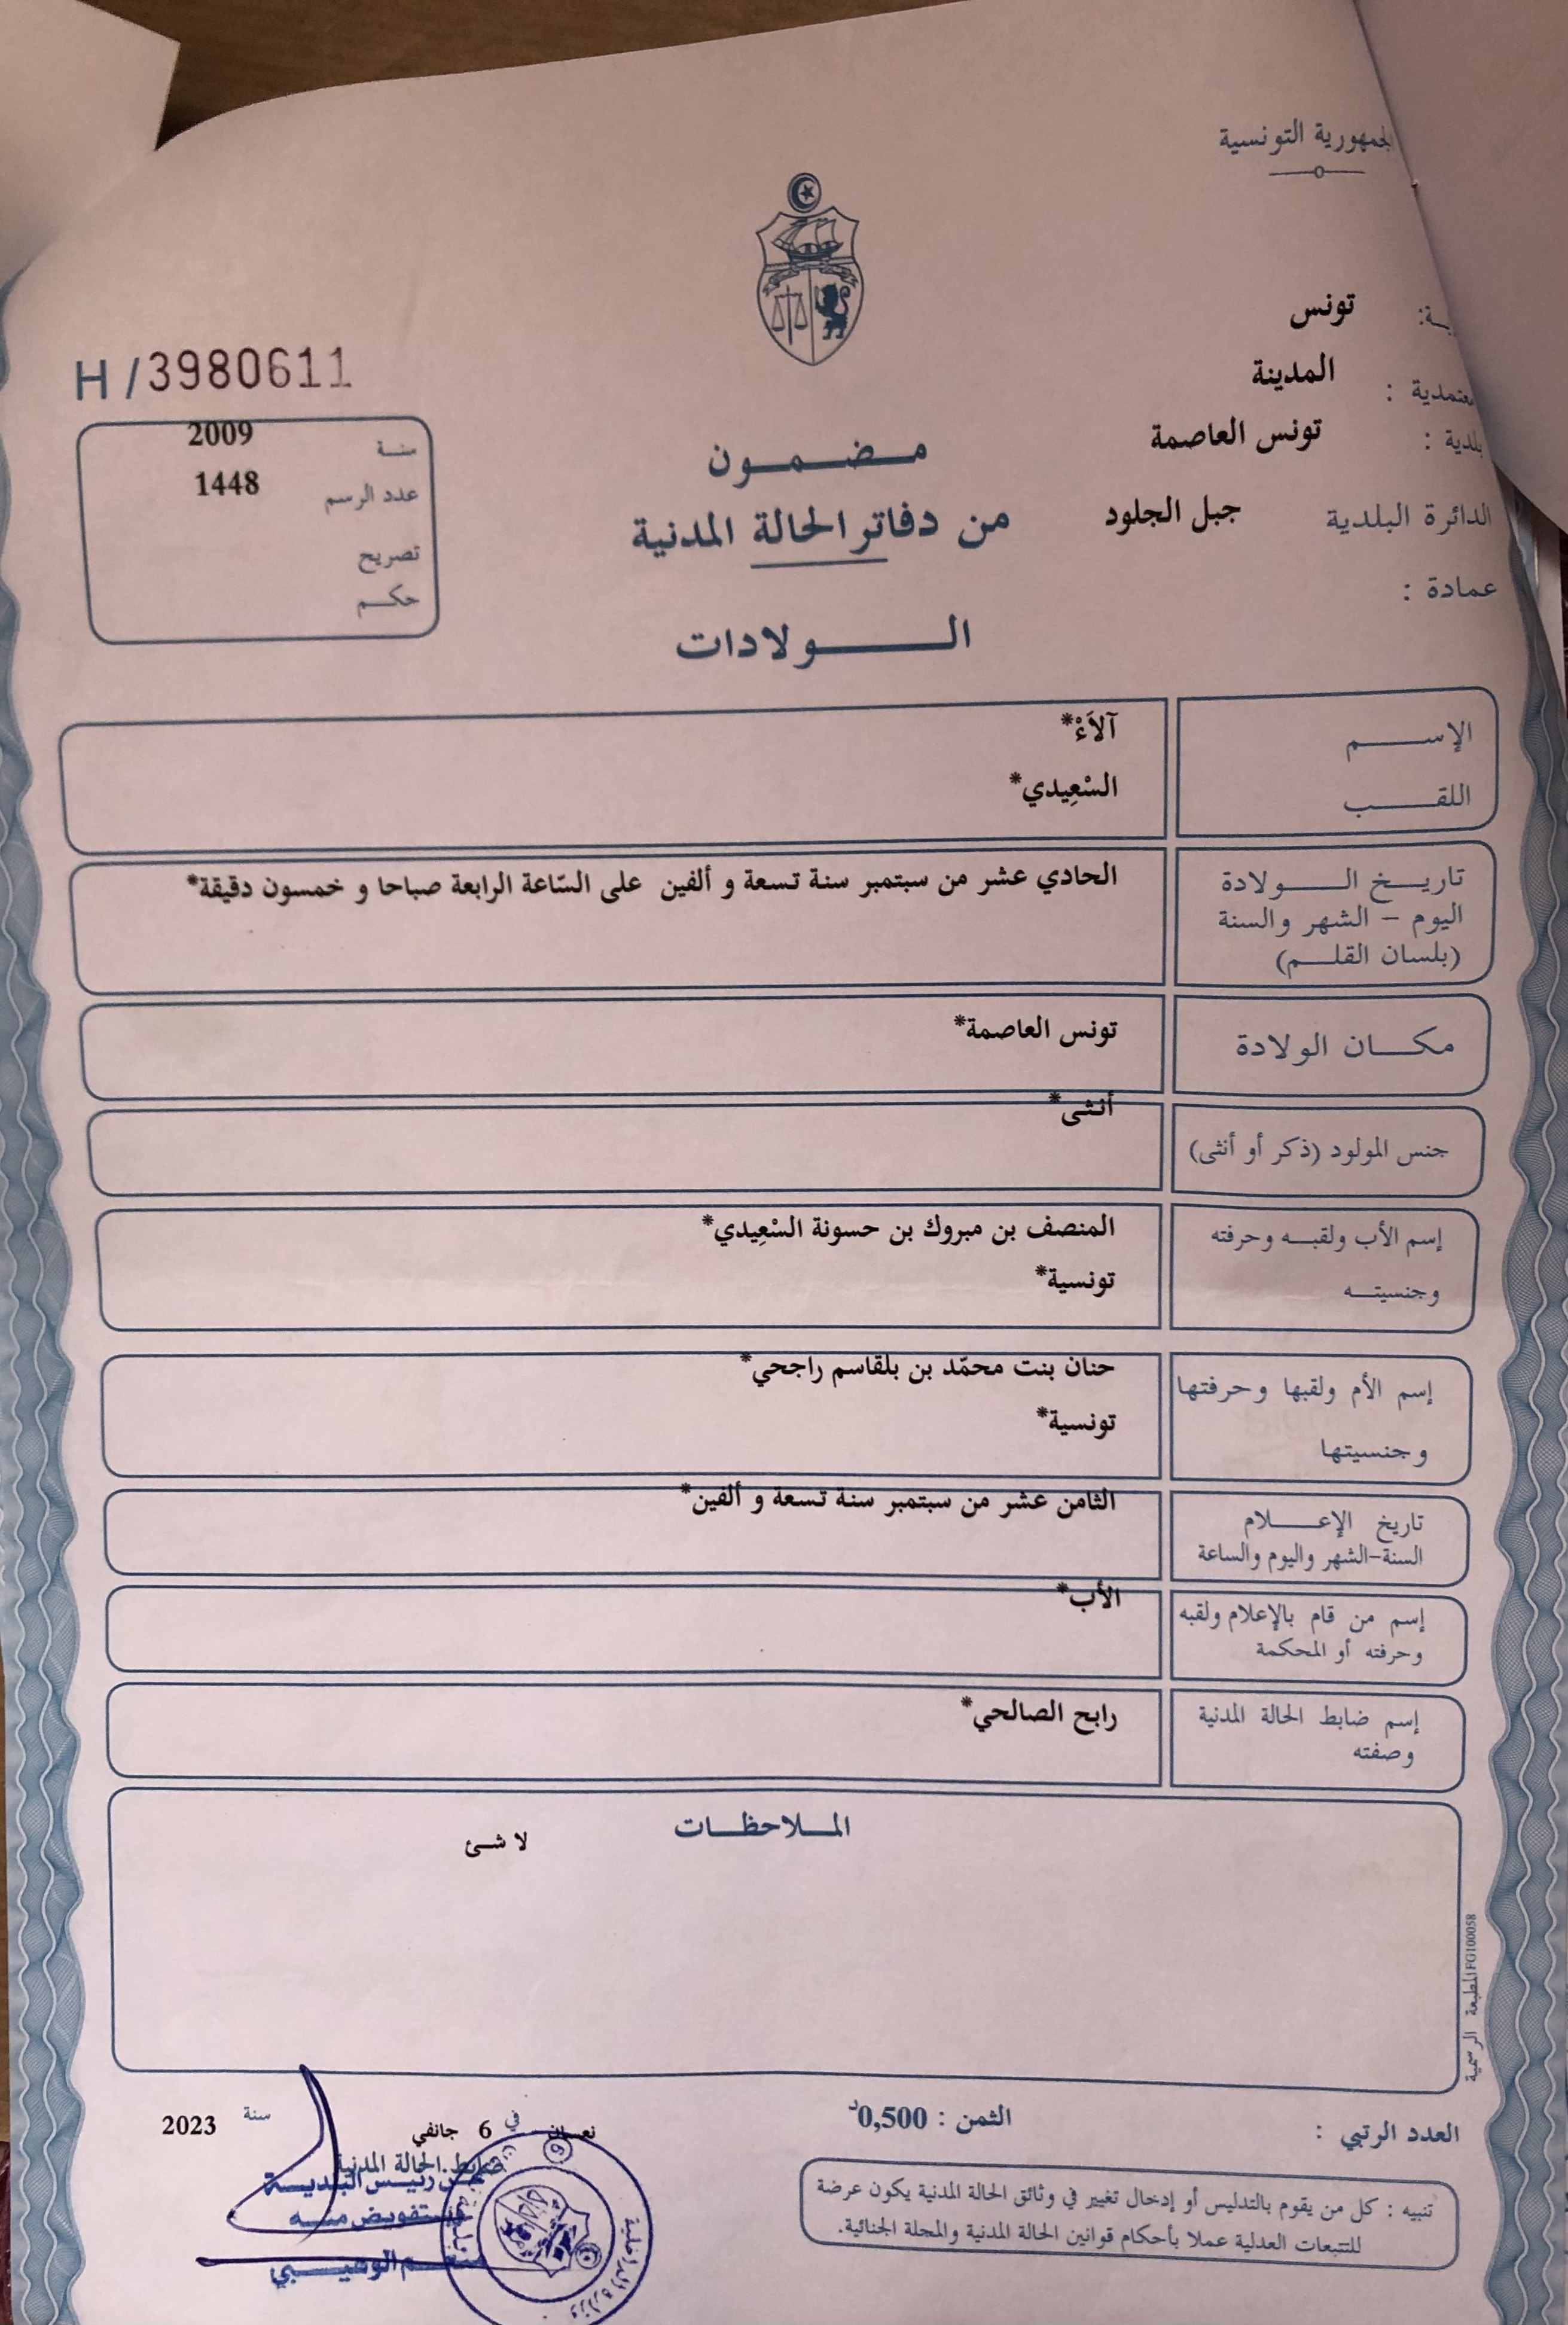 الجمهورية التونسية
تونس
معتمدية : المدينة
بلدية : تونس العاصمة
الدائرة البلدية جبل الجلود
عمادة :
H / 3980611
سنة 2009
عدد الرسم 1448
تصريح
حكم
مضمون
من دفاتر الحالة المدنية
الولادات
الإسم آلَاءْ*
اللقب السْعِيدي*
تاريخ الولادة
اليوم – الشهر والسنة
(بلسان القلم)
الحادي عشر من سبتمبر سنة تسعة و ألفين على السّاعة الرابعة صباحا و خمسون دقيقة*
مكان الولادة تونس العاصمة*
جنس المولود (ذكر أو أنثى) أنثى*
إسم الأب ولقبه وحرفته المنصف بن مبروك بن حسونة السْعِيدي*
وجنسيته تونسية*
إسم الأم ولقبها وحرفتها حنان بنت محمّد بن بلقاسم راجحي*
وجنسيتها تونسية*
تاريخ الإعلام الثامن عشر من سبتمبر سنة تسعة و ألفين*
السنة-الشهر واليوم والساعة
إسم من قام بالإعلام ولقبه الأب*
وحرفته أو المحكمة
إسم ضابط الحالة المدنية رابح الصالحي*
وصفته
الملاحظات
لا شئ
المطبعة الرسمية FG100058
العدد الرتبي :
الثمن : 0,500د
نعسان في 6 جانفي سنة 2023
ضابط الحالة المدنية
عن رئيس البلدية
وبتفويض منه
منعم الوهيبي
تنبيه : كل من يقوم بالتدليس أو إدخال تغيير في وثائق الحالة المدنية يكون عرضة
للتتبعات العدلية عملا بأحكام قوانين الحالة المدنية والمجلة الجنائية.